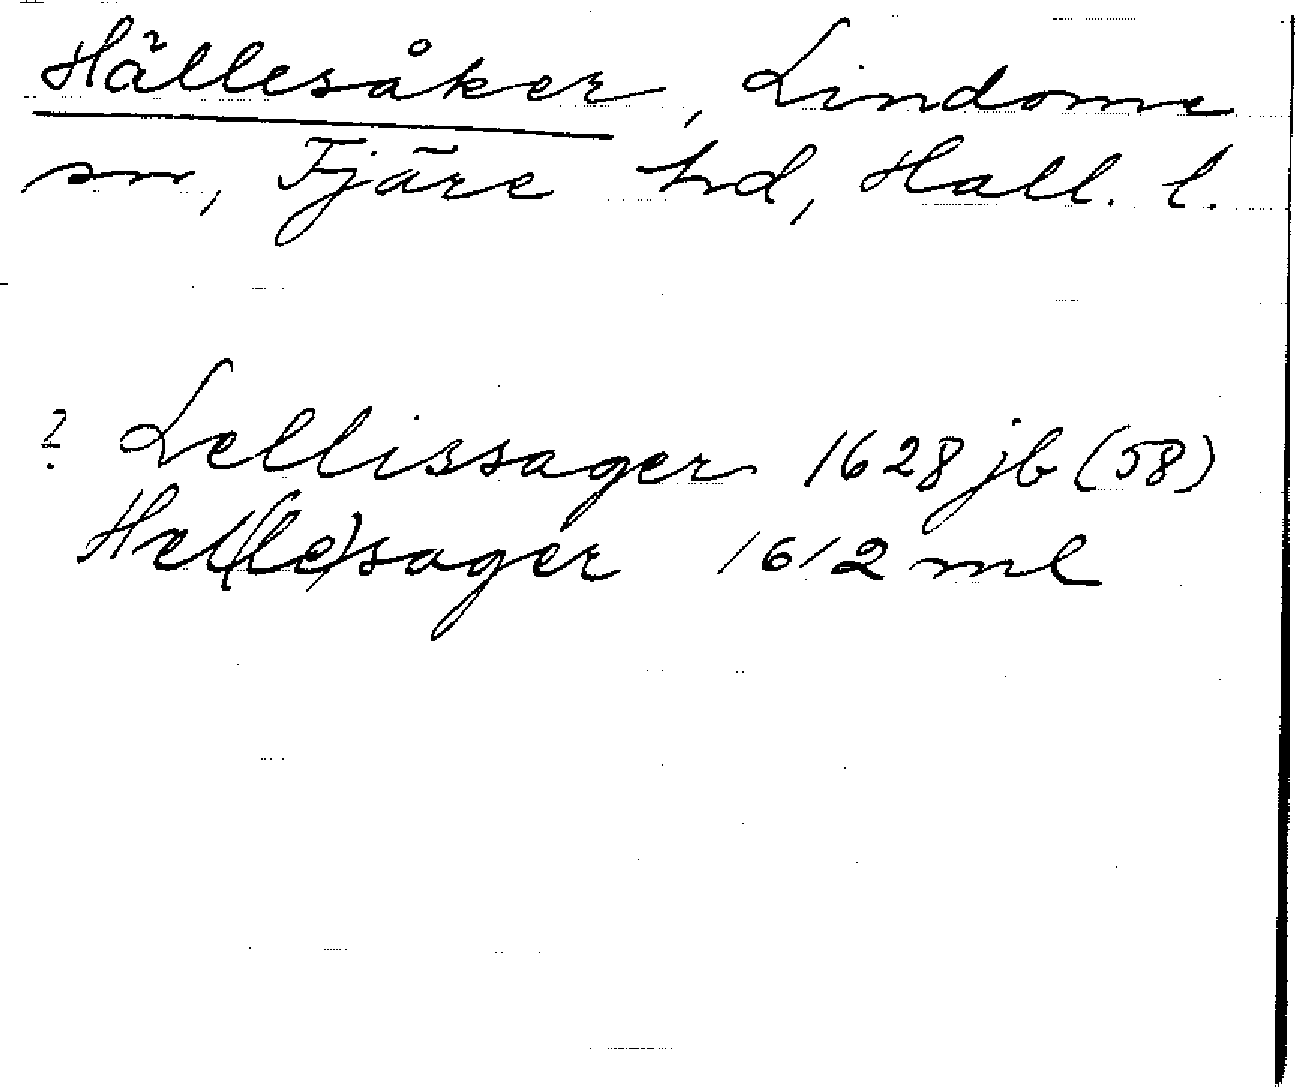 Hällesåker, Lindome
sn, Fjäre hd, Hall. l.
? Lellissager 1628 jb (58)
Hel(le)sager 1612 ml